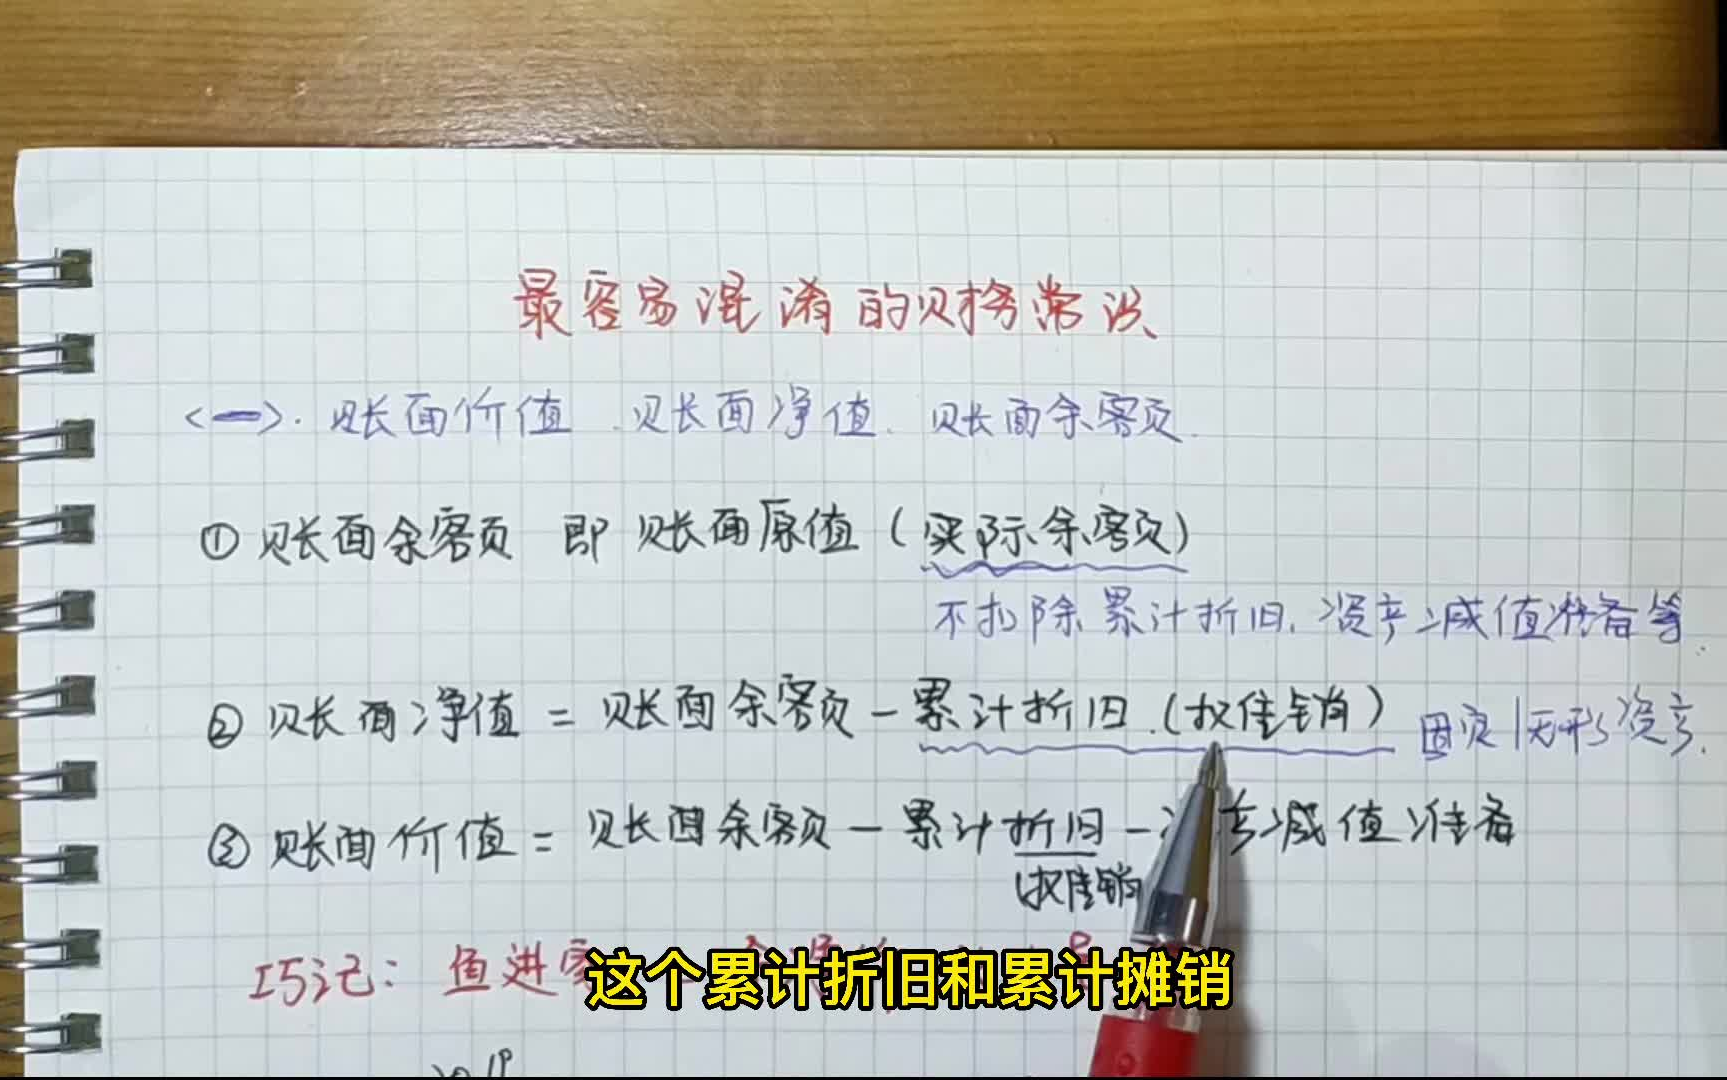 最容易混淆的财务常识
<一>. 账面价值、账面净值、账面余额.
① 账面余额 即 账面原值(实际余额)
不扣除累计折旧、资产减值准备等.
② 账面净值 = 账面余额 - 累计折旧.(摊销) 固定/无形资产.
③ 账面价值 = 账面余额 - 累计折旧 - 减值准备
(摊销
巧记: 鱼进
这个累计折旧和累计摊销